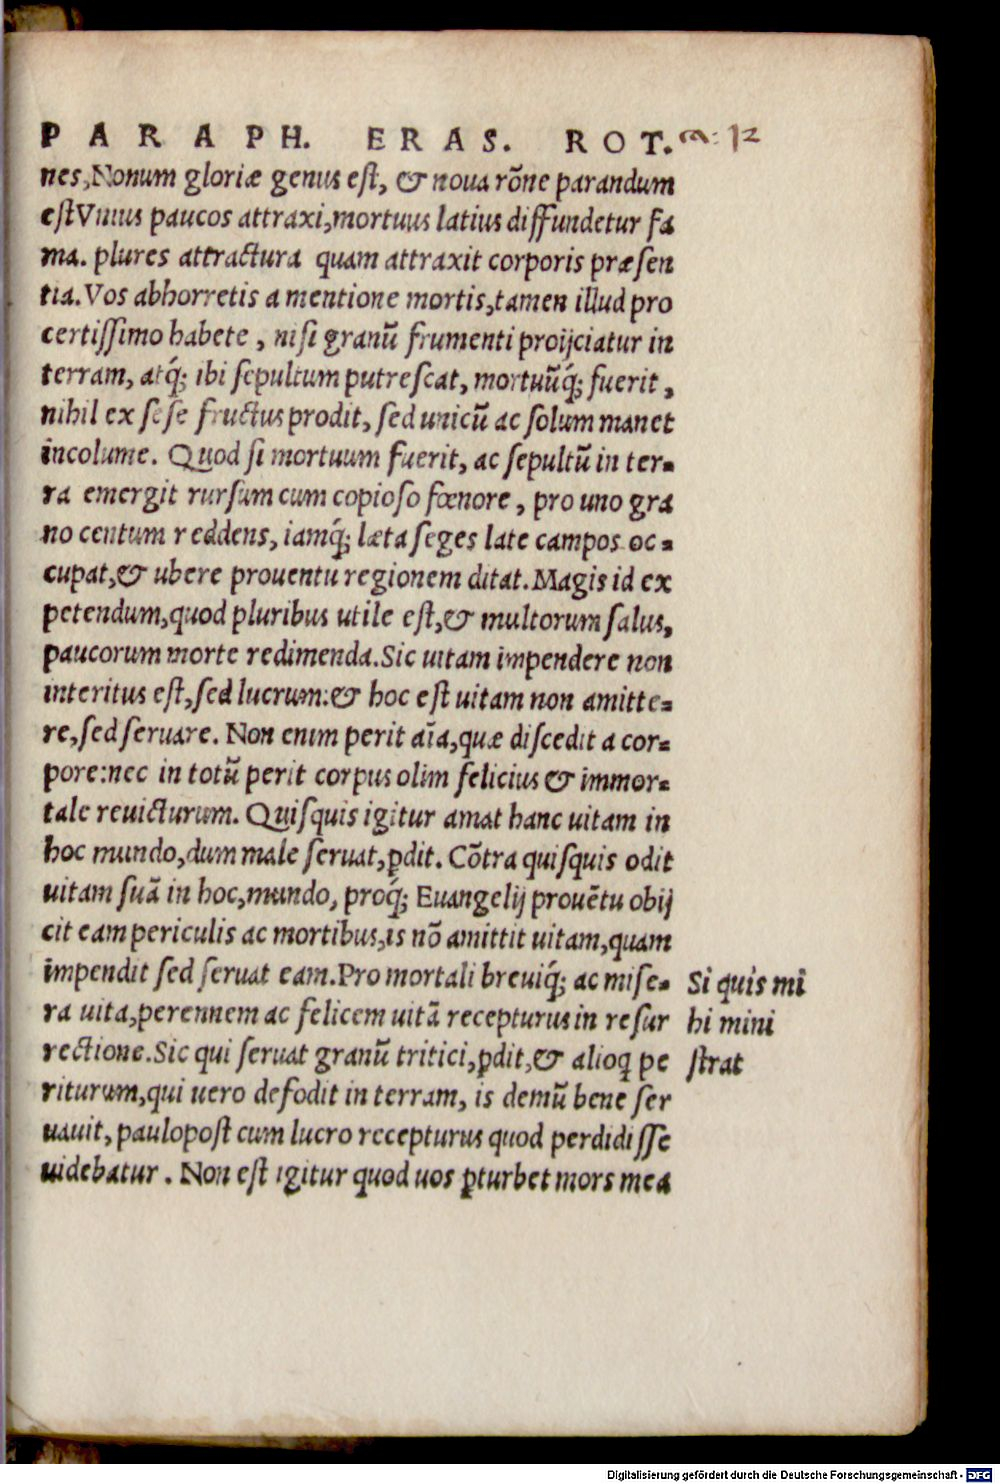 PARAPH. ERAS. ROT. 12
nes, Nonum gloriæ genus est, & noua rõne parandum
est Viuus paucos attraxi, mortuus latius diffundetur fa
ma. plures attractura quam attraxit corporis præsen
tia. Vos abhorretis a mentione mortis, tamen illud pro
certissimo habete, nisi granũ frumenti proijciatur in
terram, atq́; ibi sepultum putrescat, mortuũq́; fuerit,
nihil ex sese fructus prodit, sed unicũ ac solum manet
incolume. Quod si mortuum fuerit, ac sepultũ in ter-
ra emergit rursum cum copioso fœnore, pro uno gra
no centum reddens, iamq́; læta seges late campos oc-
cupat, & ubere prouentu regionem ditat. Magis id ex
petendum, quod pluribus utile est, & multorum salus,
paucorum morte redimenda. Sic uitam impendere non
interitus est, sed lucrum: & hoc est uitam non amitte-
re, sed seruare. Non enim perit aĩa, quæ discedit a cor-
pore: nec in totũ perit corpus olim felicius & immor-
tale reuicturum. Quisquis igitur amat hanc uitam in
hoc mundo, dum male seruat, ꝑdit. Cõtra quisquis odit
uitam suã in hoc, mundo, proq́; Euangelij prouẽtu obij
cit eam periculis ac mortibus, is nõ amittit uitam, quam
impendit sed seruat eam. Pro mortali breuiq́; ac mise-
ra uita, perennem ac felicem uitã recepturus in resur
rectione. Sic qui seruat granũ tritici, ꝑdit, & alioq pe
riturum, qui uero defodit in terram, is demũ bene ser
uauit, paulopost cum lucro recepturus quod perdidisse
uidebatur. Non est igitur quod uos ꝑturbet mors mea
Si quis mi
hi mini
strat
Digitalisierung gefördert durch die Deutsche Forschungsgemeinschaft - DFG